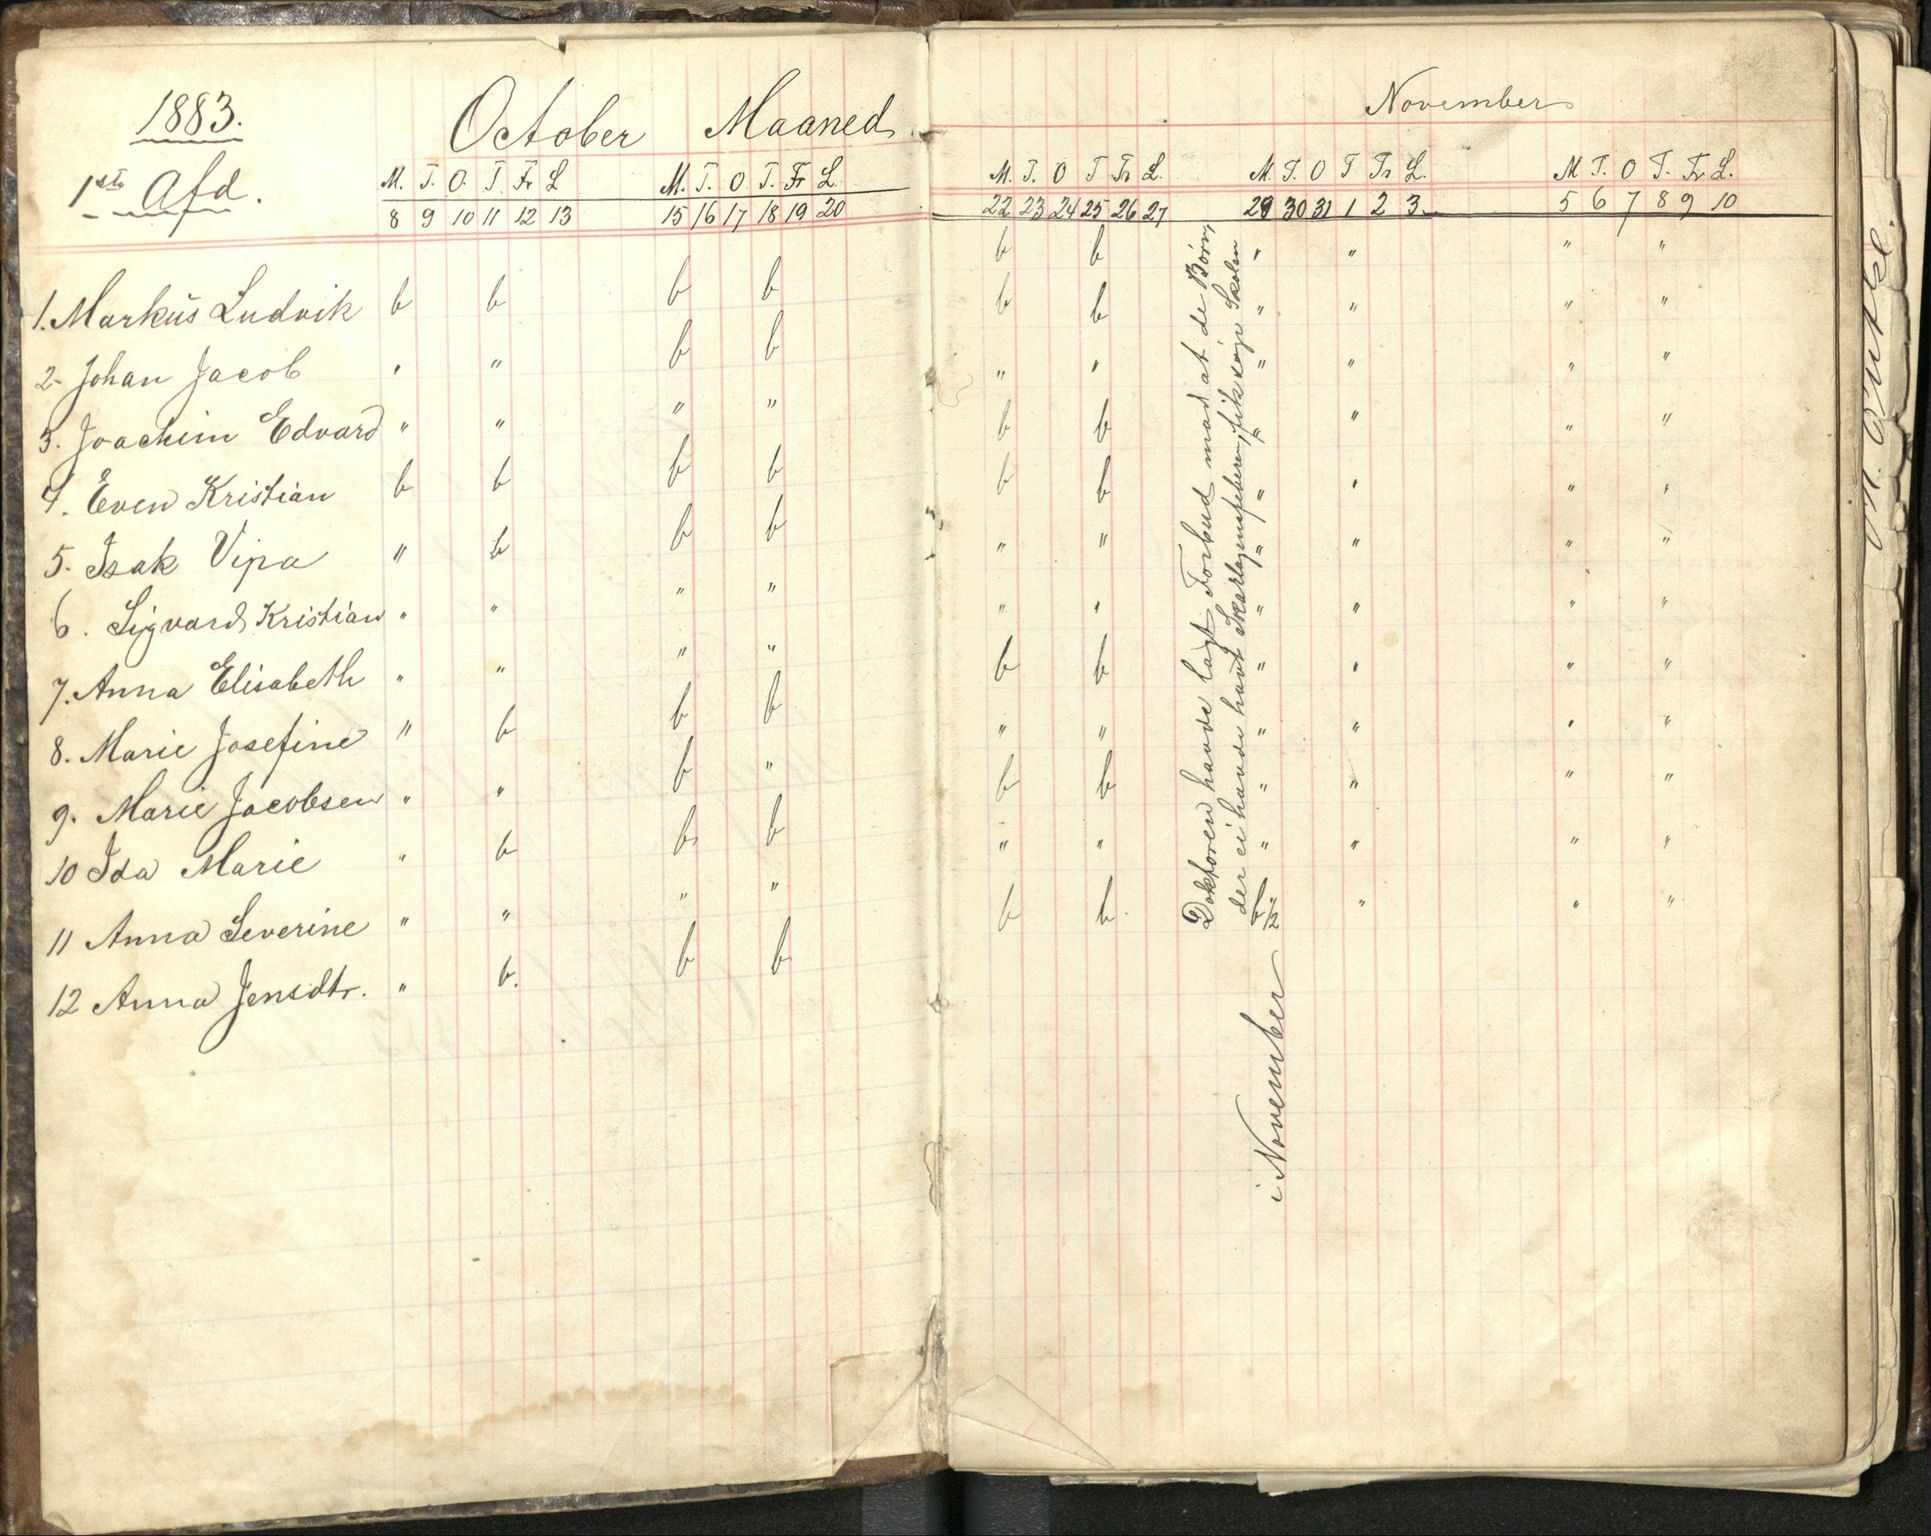 1883.
1ste Afd.
October Maaned
M. T. O. T. Fr L
M. T. O T. Fr L.
8 9 10 11 12 13
15 16 17 18 19 20
1. Markus Ludvik b b b b
2. Johan Jacob " " b b
3. Joachim Edvard " " " "
4. Even Kristian b b b b
5. Isak Vipa " b b b
6. Sigvard Kristian " " " "
7. Anna Elisabeth " " " "
8. Marie Josefine " b b b
9. Marie Jacobsen " " b "
10 Ida Marie " b b b
11 Anna Severine " " " "
12 Anna Jensdtr. " b. b b
November
M. T. O T Fr L.
M. T. O T Fr L.
M T. O T. Fr L.
22 23 24 25 26 27
29 30 31 1 2 3
5 6 7 8 9 10
b b " " " "
b b " " " "
" " " " " "
b b " " " "
b b " " " "
" " " " " "
" " " " " "
b b " " " "
" " " " " "
b b " " " "
" " " " " "
b b " " "
Doktoren havde lagt Forbud mod at de Børn,
der ei havde havt Skarlagensfeberen, fik søge Skolen
i November